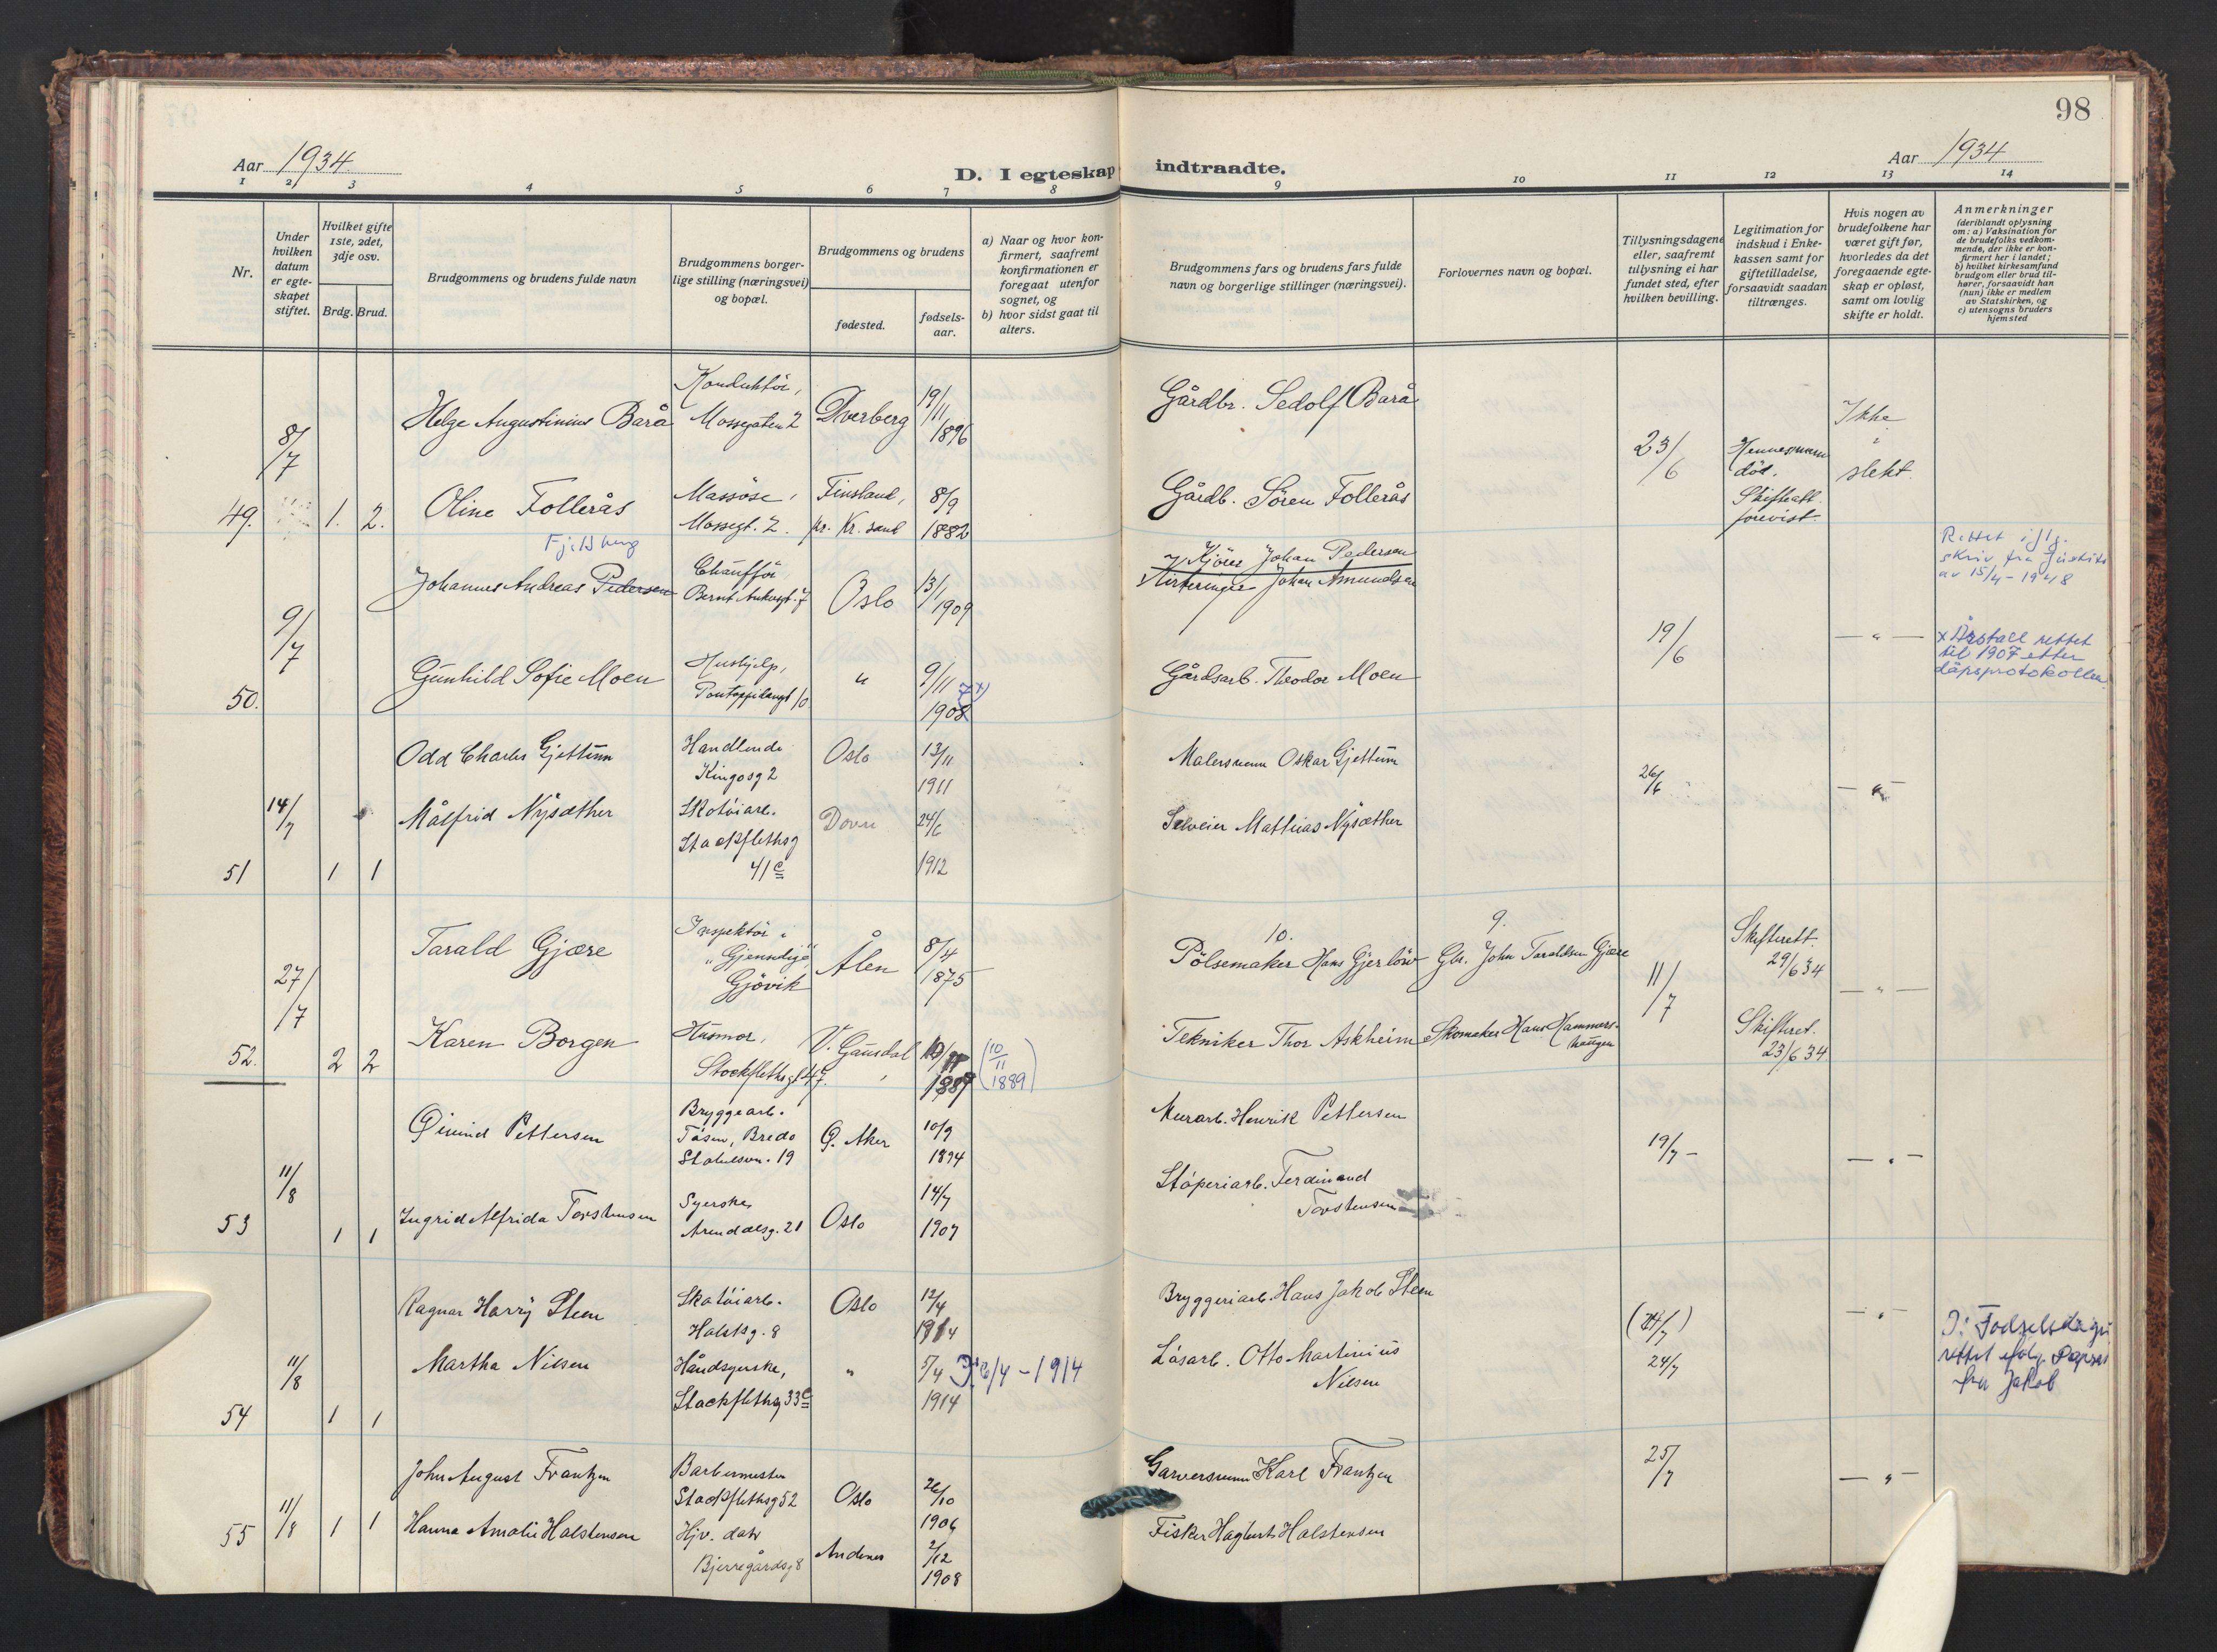 98
Aar 1934.
D. I egteskap indtraadte.
Aar 1934
1 2 3 4 5 6 7 8 9 10 11 12 13 14
Nr.
Under hvilken datum er egteskapet stiftet.
Hvilket gifte 1ste, 2det, 3dje osv.
Brdg. Brud.
Brudgommens og brudens fulde navn
Brudgommens borgerlige stilling (næringsvei) og bopæl.
Brudgommens og brudens
fødested.
fødselsaar.
a) Naar og hvor konfirmert, saafremt konfirmationen er foregaat utenfor sognet, og
b) hvor sidst gaat til alters.
Brudgommens fars og brudens fars fulde navn og borgerlige stillinger (næringsvei).
Forlovernes navn og bopæl.
Tillysningsdagene eller, saafremt tillysning ei har fundet sted, efter hvilken bevilling.
Legitimation for indskud i Enkekassen samt for giftetilladelse, forsaavidt saadan tiltrænges.
Hvis nogen av brudefolkene har været gift før, hvorledes da det foregaaende egteskap er opløst, samt om lovlig skifte er holdt.
Anmerkninger
(deriblandt oplysning om: a) Vaksination for de brudefolks vedkommende, der ikke er konfirmert her i landet;
b) hvilket kirkesamfund brudgom eller brud tilhører, forsaavidt han (hun) ikke er medlem av Statskirken, og
c) utensogns bruders hjemsted
49. 8/7 1. 2.
Helge Augustinius Barå Konduktör, Mossegaten 2 Dverberg 19/11 1896 Gårdbr. Sedolf Barå
Oline Follerås Massöse, Mossegt. 2. Finsland, pr. Kr. sand 8/9 1882 Gårdb. Sören Follerås
23/6 Hennes mann död. Skifteatt. forevist. Ikke slekt.
50. 9/7
Fjeldberg
Johannes Andreas Pedersen Chaufför Bernt Ankersgt. 7 Oslo 13/1 1909 Kjörer Johan Pedersen
Johan Amundsen
Gunhild Sofie Moen Hushjelp, Pontoppidansgt 10 " 9/11 1908 7 x) Gårdsarb. Theodor Moen
19/6 — " —
Rettet iflg. skriv fra Justitsd av 15/4 - 1948
x Årstall rettet til 1907 etter dåpsprotokollen.
51 14/7 1 1
Odd Charles Gjettum Handlende Kingosg 2 Oslo 13/11 1911 Malersvenn Oskar Gjettum
Målfrid Nysæther Skotöiarb. Stockflethsg 41c Dovre 24/6 1912 Selveier Mathias Nysæther
26/6 — " —
52. 27/7 2 2
Tarald Gjære Inspektör i "Gjensidige" Gjövik Ålen 8/4 1875 10. Pölsemaker Hans Gjerlöw 9. Gbr. John Taraldsen Gjære
Karen Borgen Husmor, Stockflethsgt 47. V. Gausdal (10/11 1889) Tekniker Thor Askheim Skomaker Hans Hammershaugen
11/7 Skifterett. 29/6 34 Skifteret. 23/6 34. — " —
53 11/8 1 1
Öivind Pettersen Bryggearb. Tåsen, Bredo Stabelsvn. 19 Ö. Aker 10/9 1894 Murarb. Henrik Pettersen
Ingrid Alfrida Torstensen Syerske, Arendalsg. 21 Oslo 14/7 1907 Stöperiarb. Ferdinand Torstensen
19/7 — — " —
54 11/8 1 1
Ragnar Harry Steen Skotöiarb. Holstsg. 8 Oslo 12/4 1914 Bryggeriarb. Hans Jakob Steen
Martha Nilsen Håndsyerske, Stockflethsg 33c " 5/4 1914 6/4 - 1914 Låsarb. Otto Martinius Nilsen
24/7 — " —
Fodselsdagen rettet ifölg. fra Jakob
55 11/8 1 1
John August Frantzen Barbermester Stockflethsg 52 Oslo 26/10 1906 Garversvenn Karl Frantzen
Hanna Amalie Halstensen Hjv. datr Bjerregårdsg 8 Andenes 2/12 1908 Fisker Hagbart Halstensen
25/7 — " —